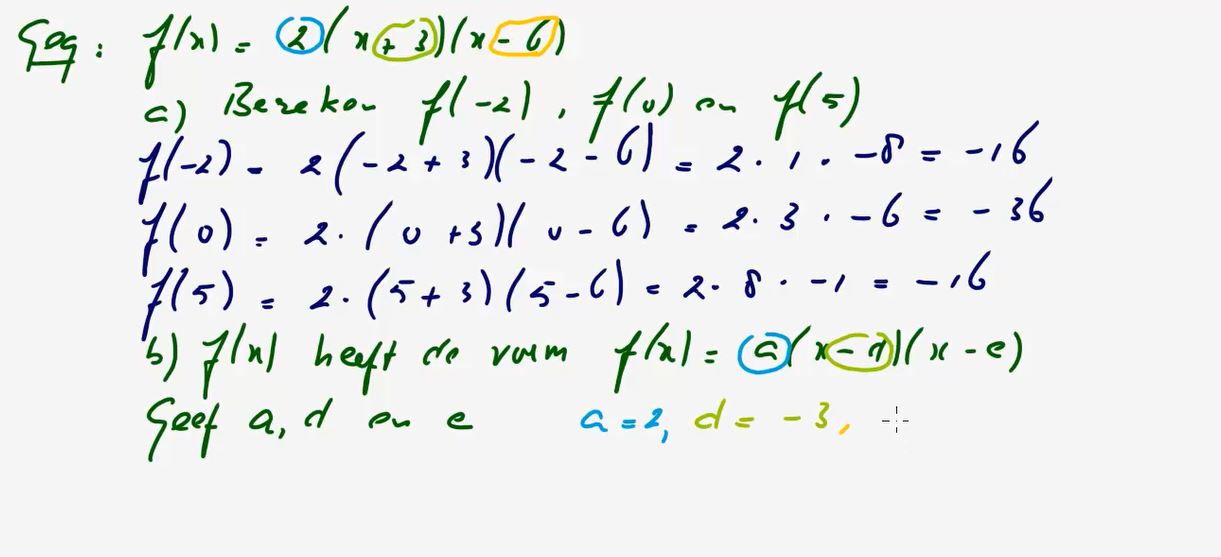 Geg: f(x) = 2(x+3)(x-6)
a) Bereken f(-2), f(0) en f(5)
f(-2) = 2(-2+3)(-2-6) = 2·1·-8 = -16
f(0) = 2·(0+3)(0-6) = 2·3·-6 = -36
f(5) = 2·(5+3)(5-6) = 2·8·-1 = -16
b) f(x) heeft de vorm f(x) = a(x-d)(x-e)
Geef a, d en e a=2, d=-3,